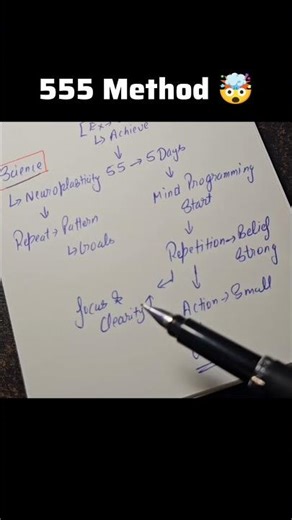 555 Method 🤯
[Ex→
↳ Achieve
↓
Science
55 → 5 Days
↳ Neuroplasticity
Mind Programming
Start
Repeat → Pattern
↳ Goals
Repetition → Belief
Strong
focus &
Clearity ↑
Action → Small